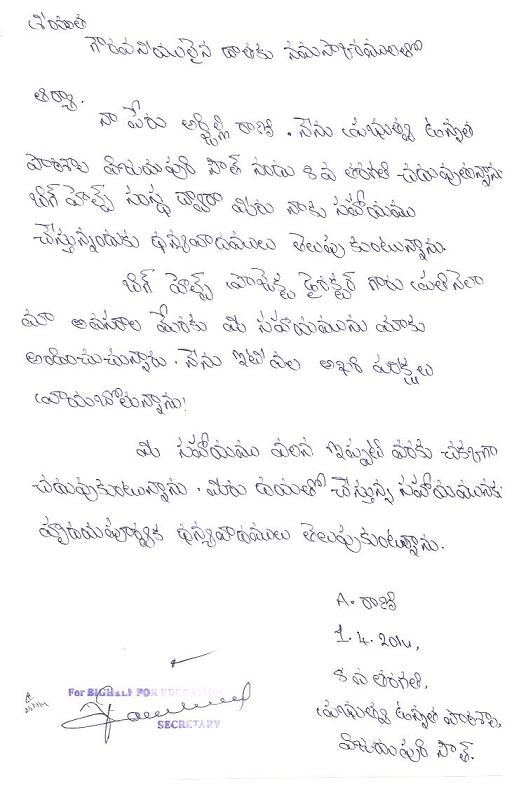 గౌరవనీయులైన దాతకు నమస్కారములతో
ఆర్యా.
నా పేరు రాణి. నేను ప్రభుత్వ ఉన్నత
పాఠశాల విజయపురి సౌత్ నందు 8వ తరగతి చదువుతున్నాను
బిగ్ హెల్ప్ సంస్థ ద్వారా మీరు నాకు సహాయము
చేస్తున్నందుకు ధన్యవాదములు తెలుపు కుంటున్నాను.
బిగ్ హెల్ప్ ప్రాజెక్టు డైరెక్టర్ గారు ప్రతినెలా
మా అవసరాల మేరకు మీ సహాయమును మాకు
అందించుచున్నారు. నేను ఇటీవల ఆఖరి పరీక్షలు
వ్రాయబోతున్నాను!
మీ సహాయము వలన ఇప్పటి వరకు చక్కగా
చదువుకుంటున్నాను. మీరు దయతో చేస్తున్న సహాయమునకు
హృదయపూర్వక ధన్యవాదములు తెలుపుకుంటున్నాను.
A. రాణి
1.4.2014,
8 వ తరగతి,
ప్రభుత్వ ఉన్నత పాఠశాల,
విజయపురి సౌత్.
For BIGHELP FOR EDUCATION
SECRETARY